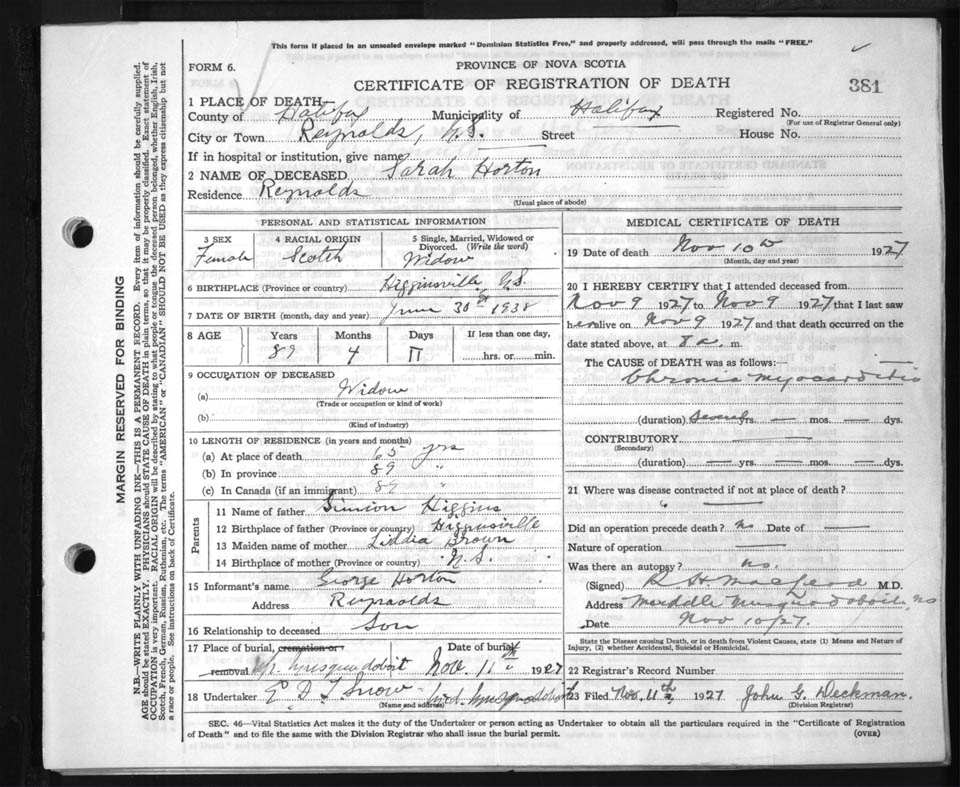 This form if placed in an unsealed envelope marked "Dominion Statistics Free," and properly addressed, will pass through the mails "FREE."
FORM 6.
PROVINCE OF NOVA SCOTIA
CERTIFICATE OF REGISTRATION OF DEATH
381
1 PLACE OF DEATH
County of Halifax Municipality of Halifax Registered No.
(For use of Registrar General only)
City or Town Reynolds, N.S. Street House No.
If in hospital or institution, give name
2 NAME OF DECEASED Sarah Horton
Residence Reynolds
(Usual place of abode)
PERSONAL AND STATISTICAL INFORMATION
3 SEX
Female
4 RACIAL ORIGIN
Scotch
5 Single, Married, Widowed or Divorced. (Write the word)
Widow
6 BIRTHPLACE (Province or country) Higginsville, N.S.
7 DATE OF BIRTH (month, day and year) June 30 1938
8 AGE
Years
89
Months
4
Days
11
If less than one day,
hrs. or min.
9 OCCUPATION OF DECEASED
(a) Widow
(Trade or occupation or kind of work)
(b)
(Kind of industry)
10 LENGTH OF RESIDENCE (in years and months)
(a) At place of death 65 yrs
(b) In province 89 "
(c) In Canada (if an immigrant) 89 "
Parents
11 Name of father Simion Higgins
12 Birthplace of father (Province or country) Higginsville
13 Maiden name of mother Liddia Brown
14 Birthplace of mother (Province or country) N.S.
15 Informant's name George Horton
Address Reynolds
16 Relationship to deceased Son
17 Place of burial, cremation or removal Musquodoboit
Date of burial
Nov. 11th 1927
18 Undertaker E D F Snow Mid. Musquodoboit
(Name and address)
MEDICAL CERTIFICATE OF DEATH
19 Date of death Nov 10th 1927
(Month, day and year)
20 I HEREBY CERTIFY that I attended deceased from
Nov 9 1927 to Nov 9 1927 that I last saw
her alive on Nov 9 1927 and that death occurred on the
date stated above, at 8 a. m.
The CAUSE of DEATH was as follows:—
Chronic Myocarditis
(duration) Several yrs. — mos. — dys.
CONTRIBUTORY
(Secondary)
(duration) — yrs. — mos. — dys.
21 Where was disease contracted if not at place of death?
Did an operation precede death? no Date of —
Nature of operation —
Was there an autopsy? no.
(Signed) R H MacLeod M.D.
Address Middle Musquodoboit, NS
Date Nov 10/27.
State the Disease causing Death, or in death from Violent Causes, state (1) Means and Nature of Injury, (2) whether Accidental, Suicidal or Homicidal.
22 Registrar's Record Number
23 Filed Nov. 11th 1927 John G. Deckman.
(Division Registrar)
SEC. 46—Vital Statistics Act makes it the duty of the Undertaker or person acting as Undertaker to obtain all the particulars required in the "Certificate of Registration
of Death" and to file the same with the Division Registrar who shall issue the burial permit.
(OVER)
MARGIN RESERVED FOR BINDING
N.B.—WRITE PLAINLY WITH UNFADING INK—THIS IS A PERMANENT RECORD. Every item of information should be carefully supplied.
AGE should be stated EXACTLY. PHYSICIANS should STATE CAUSE OF DEATH in plain terms, so that it may be properly classified. Exact statement of
OCCUPATION is very important. RACIAL ORIGIN will be described by stating to what people or tongue the deceased person belonged, whether English, Irish,
Scotch, French, German, Russian, Ruthenian, etc. The terms "AMERICAN" or "CANADIAN" SHOULD NOT BE USED as they express citizenship but not
a race or people. See instructions on back of Certificate.